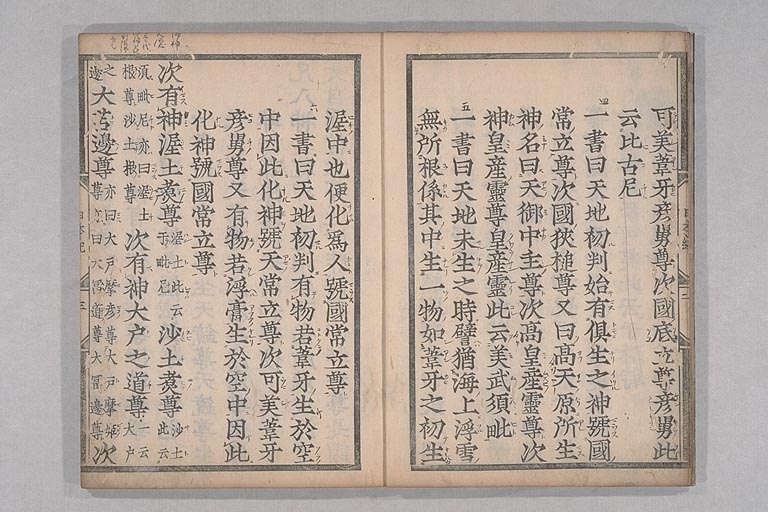 可美葦牙彦舅尊次國底立尊彦舅此
云比古尼
四
一書曰天地初判始有俱生之神號國
常立尊次國狹槌尊又曰高天原所生
神名曰天御中主尊次高皇産靈尊次
神皇産靈尊皇産靈此云美武須毗
五
一書曰天地未生之時譬猶海上浮雪
無所根係其中生一物如葦牙之初生
渥中也便化爲人號國常立尊
六
一書曰天地初判有物若葦牙生於空
中因此化神號天常立尊次可美葦牙
彦舅尊又有物若浮膏生於空中因此
化神號國常立尊
次有神渥土煑尊渥土此云于毗尼沙土煑尊沙土此云
須毗尼亦曰渥土根尊沙土根尊次有神大戸之道尊一云大戸
之邊大苫邊尊亦曰大戸摩彦尊大戸摩姬尊亦曰大冨道尊大冨邊尊次